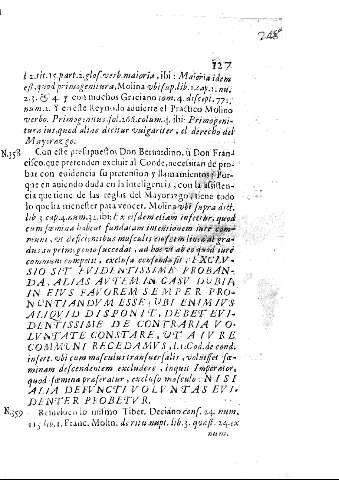 127
l 2. tit. 15. part. 2. glos. verb. maioria, ibi: Maioria idem
est, quod primogenitura, Molina vbi sup. lib. 1. cap. 1. nu.
2. 3. & 4. y con muchos Graciano tom. 4. discept. 772.
num. 1. Y en este Reynado advierte el Practico Molino
verbo. Primogenitus. fol. 268. colum. 4. ibi: Primogeni-
tura inquod alias dicitur vulgariter, el derecho del
Mayorazgo.
N.358 Con este presupuestos Don Bernardino, ù Don Fran-
cisco, que pretenden excluir al Conde, necesitan de pro-
bar con evidencia su pretension y llanamientos: Por-
que en aviendo duda en la inteligencia, con la assisten-
cia que tiene de las reglas del Mayorazgo, tiene todo
lo que ha menester para vencer. Molina vbi supra dict.
lib. 3. cap. 4. num. 32. ibi: Ex eisdem etiam infertur, quod
cum fœmina habeat fundatam intentionem iure com-
muni, vt deficientibus masculis eiusdem lineæ & gra-
dus in primogenito succedat, ad hoc vt ab eo quod iure
communi competit, exclusa censenda sit: EXCLV-
SIO SIT EVIDENTISSIME PROBAN-
DA. ALIAS AVTEM IN CASV DVBII,
IN EIVS FAVOREM SEMPER PRO-
NVNTIANDVM ESSE: VBI ENIM IVS
ALIQVID DISPONIT, DEBET EVI-
DENTISSIME DE CONTRARIA VO-
LVNTATE CONSTARE, VT A IVRE
COMMVNI RECEDAMVS, l. 1. Cod. de cond.
insert. vbi cum masculus transuersalis, volvisset fœ-
minam descendentem excludere, inquit Imperator,
quod fœmina præferatur, excluso masculo: NISI
ALIA DEFVNCTI VOLVNTAS EVI-
DENTER PROBETVR.
N.359 Resuelven lo mismo Tiber. Deciano cons. 24. num.
115 lib. 1. Franc. Molin. de ritu nupt. lib. 3. quæst. 24. ex
num.